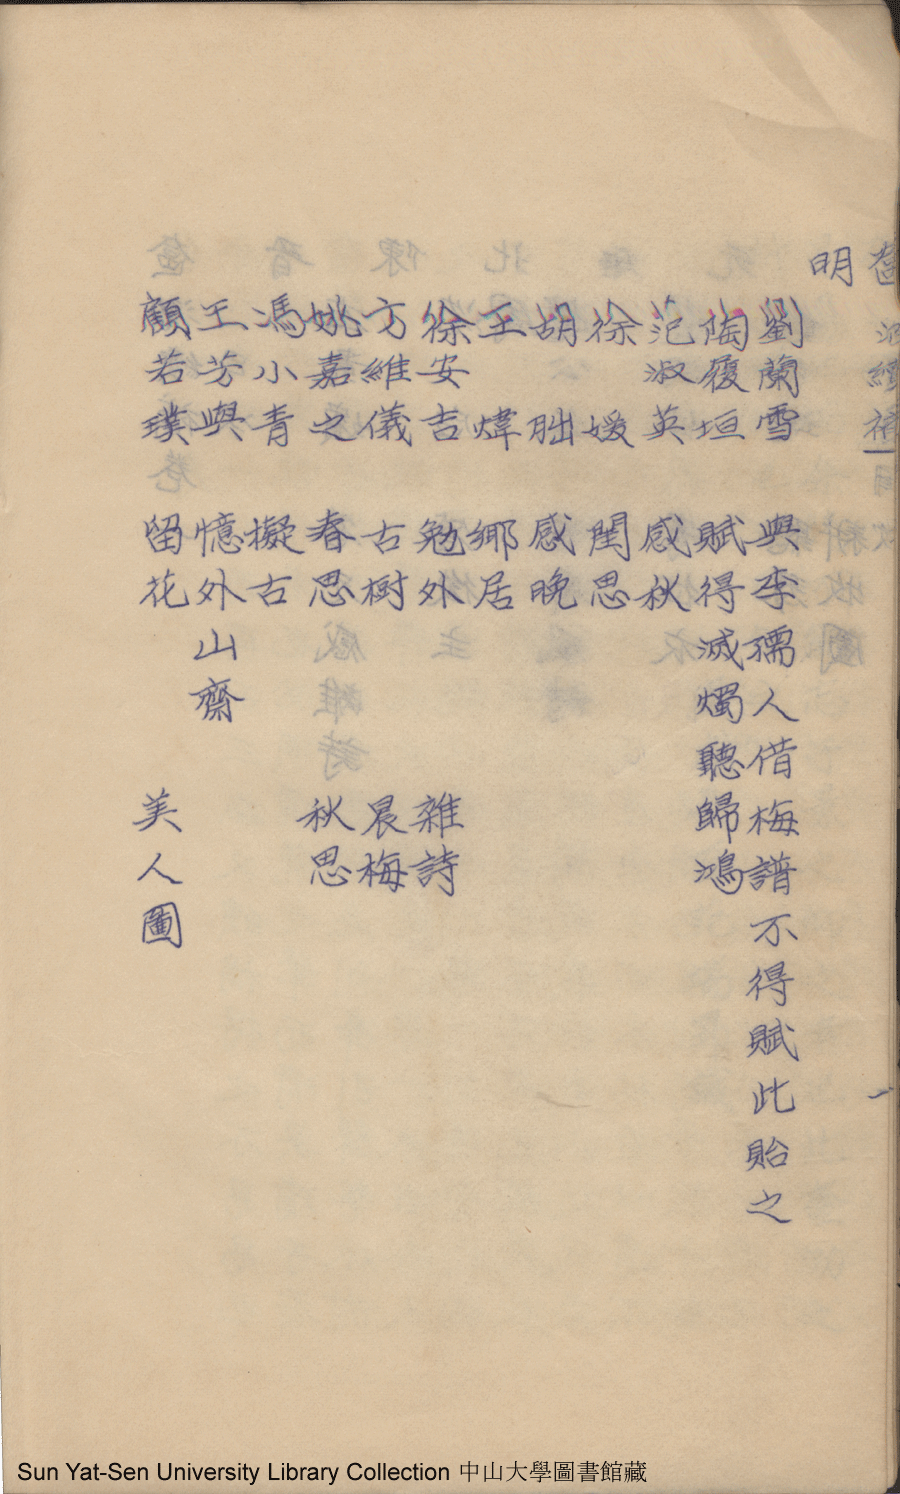 明
劉蘭雪 與李孺人借梅譜不得賦此貽之
陶履垣 賦得滅燭聽歸鴻
范淑英 感秋
徐媛 閨思
胡朏 感晚
王煒 鄉居
徐安吉 勉外 雜詩
方維儀 古樹 晨梅
姚嘉之 春思 秋思
馮小青 擬古
王芳與 憶外 山齋
顧若璞 留花 美人圖
Sun Yat-Sen University Library Collection 中山大學圖書館藏